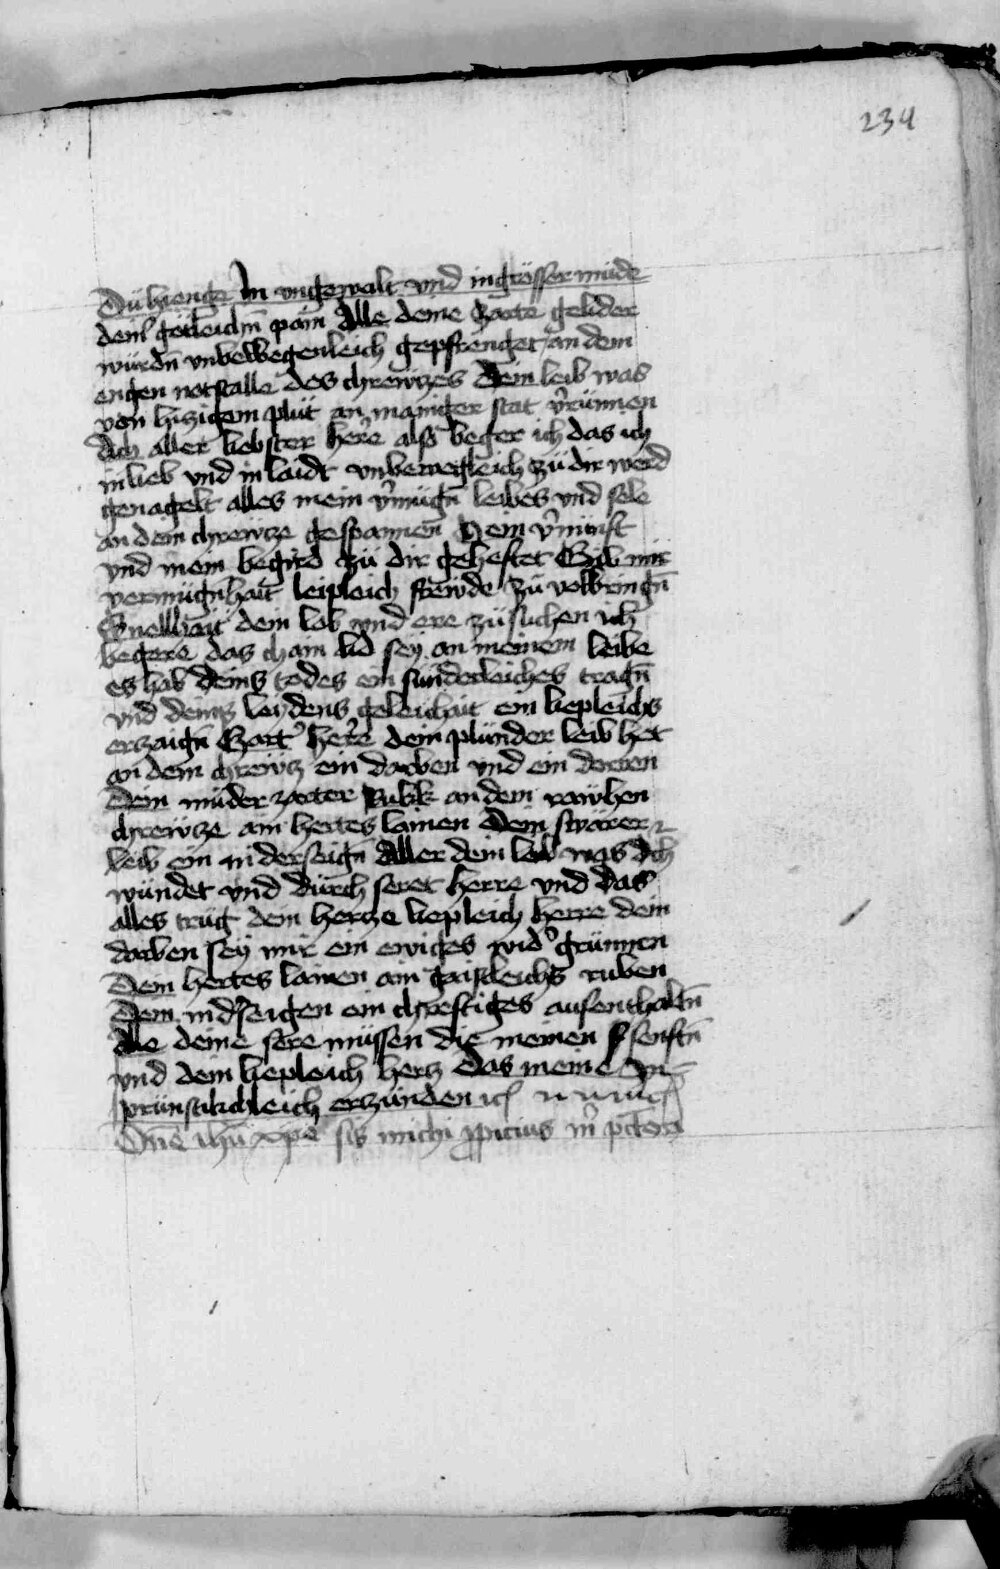 234
Dü hienge In vngewalt vnd in grösser müde
deiner götleichñ párn Alle deine zarte gelider
würdñ vnbewegenleich gepfrenget an dem
engen notstalle des chrewtzes Dein leib was
von hiczigem plüt an maniger stat v̾rünnen
Ach aller liebster her̾e alss beger ich das ich
in lieb vnd in laidt vnbewegleich zü dir werd
genagelt alles mein v̾mügñ leibes vnd sele
an dein chrewtze gespannen Mein v̾nünft
vnd mein begird zü dir geheftet Gib mir
vermügñhait leipleich frewde zü volbringñ
Snellhait dein lob vnd ere zü suchen ich
begere das chain lid sey an meinem leibe
es hab deins todes ein sünderleiches tragñ
vnd deins leydens geleichait ein liepleichs
erzaigñ Zart̾ her̾e dein plünder leib het
an dem chrewtz ein dorben vnd ein dorren
Dein müder zarter Rukk an dem rawhen
chrewtze ain hertes lainen Dein swärer
leib ein niderseigñ Aller dein leib was dch
wündet vnd dürch seret herre vnd das
alles trüg dein hertze liepleich herre dein
dorben sey mir ein ewiges wid̾ grünnen
Dein hertes lainen ain gaistleichs rüben
Dein nid̾seigen ein chreftiges aufenthaltñ
Alle deine sere müssen die meinen senftñ
vnd dein liepleich hertz das meine In
prünstichleich erzünden
Dñe ihũ xp̃e sis michi p̱picius m̃ pctõri